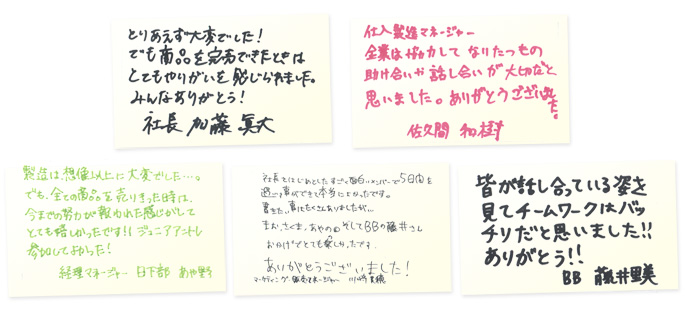 とりあえず大変でした!
でも商品を完売できたときは
とてもやりがいを感じられました。
みんなありがとう!
社長 加藤 真大
仕入製造マネージャー
企業は協力して なりたつもの
助け合いや 話し合いが 大切だと
思いました。ありがとうございました。
佐久間 和樹
製造は、想像以上に大変でした…。
でも、全ての商品を売りきった時は、
今までの努力が報われた感じがして
とても嬉しかったです!! ジュニアアントレ
参加してよかった!
経理マネージャー 日下部 あや野
社長をはじめとしたすごく面白いメンバーで5日間を
過ごす事ができて本当によかったです。
まお、さくま、あやの日 そしてBBの藤井さん
おかげでとても楽しかったです。
ありがとうございました!
マーケティング・販売マネージャー 川崎
皆が話し合っている姿を
見てチームワークはバッ
チリだと思いました!!
ありがとう!!
BB 藤井里美